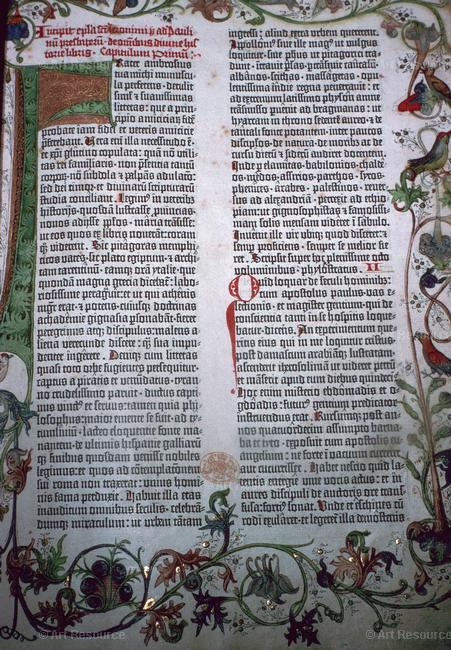 Incipit epl̃a sc̃i ieronimi p̃ ad Pauli-
nũ presbiterũ · de omnibus diuine his-
torie libris · Capitulum Primũ ·
Frater ambrosius
tua michi munuscu-
la perferens · detulit
simul & suauissimas
litteras: que a prin-
cipio amicicia4 · fidẽ
probate iam fidei et veteris amicicie
preferebant. Uera eñ illa necessitudo ē
& xp̃i glutino copulata: quã nõ utili-
tas rei familiaris · non presentia tantũ
corporũ · nõ subdola & palpans adulacõ:
sed dei timor · et diuinarũ scripturarũ
studia conciliant. Legim9 in veteribs
historijs · quosdã lustrasse ꝓuincias ·
nouos adijsse pp̃los · maria trãsisse:
ut eos quos ex libris nouerant: coram
q̃ȝ viderent. Sic pitagoras memphi-
ticos vates · sic plato egiptum · & archi-
tam tarentinũ · eamq̃ȝ orã ytalie · que
quondã magna grecia dicebat: labo-
riosissime peragrauit: et ut qui athenis
mgr̃ erat · & potens · cuiusq̃ȝ doctrinas
achademie gignasia psonabãt · fieret
peregrinus atq̃ȝ discipulus: malens a-
liena verecunde discere: q̃ȝ sua impu-
denter ingerere. Deniq̃ȝ cum litteras
quasi toto orbe fugientes persequitur ·
captus a piratis et venũdatus · tyrano
crudelissimo paruit · ductus capti-
uus vinct9 et seruus: tamen quia phi-
losophus: maior emente se fuit ad ty-
tumliuiũ · lacteo eloquentie fonte ma-
nantem · de ultimis hispanie galliarũ
q̃ȝ finibus quosdam venisse nobiles
legimus: et quos ad cõtemplacionẽ
sui roma non traxerat: unius homi-
nis fama perduxit. Habuit illa etas
inauditum omnibus seculis · celebrã-
dumq̃ȝ miraculum: ut urbem tãtam
ingressi: aliud extra urbem quererent.
Apollonius siue ille mag9 ut vulgus
loquitur · siue phus ut pitagorici tra-
dunt · intrauit psas · ptransiuit caucasũ ·
albanos · scithas · massagetas · opu-
lentissima indie regna penetrauit: et
ad extremum latissimo physon amne
trãsmisso puenit ad bragmanas: ut
hyarcam in throno sedente aureo · & de
tantali fonte potantem · inter paucos
discip̃los · de natura · de moribus ac de
cursu dierũ & siderũ audiret docentem.
Inde p elamitas · babilonios · chalde-
os · medos · assyrios · parthos · syros ·
phenices · arabes · palestinos · reuer-
sus ad alexandriã · perrexit ad ethyo-
piam: ut gignosophistas & famosissi-
mam solis mensam videret ĩ sabulo.
Inuenit ille vir ubiq̃ȝ quod disceret: et
semp proficiens · semper se melior fie-
ret. Scripsit super hoc plenissime octo
voluminibus · phylostratus. II
Quid loquar de seculi hominibȝ:
cum apostolus paulus · vas e-
lectionis · et magister gentium · qui de
conscientia tanti in se hospitis loque-
batur · dicens. An experimentum que-
ritis eius qui in me loquitur cristus ·
post damascum arabiãq̃ȝ lustratam ·
ascenderit iherosolimã ut videret petrũ
et mãserit apud eum diebus quindecĩ.
Hoc enim misterio ebdomadis et o-
gdoadis: futur9 gentium predicator
instruendus erat. Rursumq̃ȝ post an-
nos quatuordecim assumpto barna-
ba et tyto · exposuit cum apostolis eu-
angelium: ne forte ĩ vacuum curreret
aut cucurrisset. Habet nescio quid la-
tentis energie viue vocis actus: et in
aures discipuli de auctoris ore trans-
fusa: forti9 sonat. Unde et eschines cũ
rodi exularet · et legeret̃ illa demostenis
© Art Resource
© Art Resource
© Art Resource